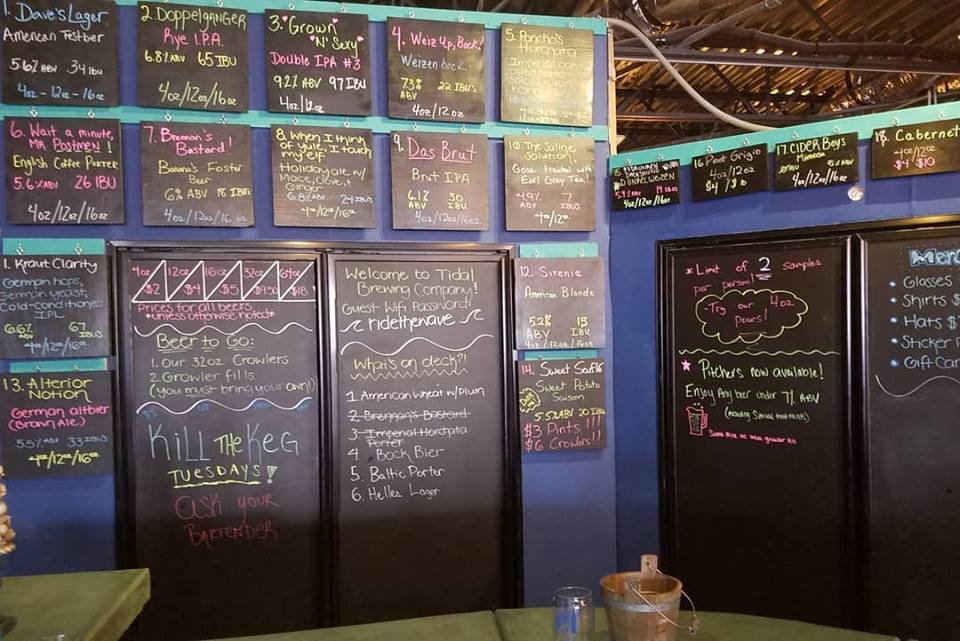 1. Dave's Lager
American Festbier
5.6% ABV 34 IBU
4oz - 12oz - 16oz
2. Doppelganger
Rye I.P.A.
6.8% ABV 65 IBU
4oz/12oz/16oz
3. Grown
'N' Sexy
Double IPA #3
9.2% ABV 97 IBU
4oz/12oz
4. Weiz Up, Bock!
Weizenbock
7.3% ABV 22 IBU's
4oz/12oz
5. Poncho's
Horchata
Imperial
6. Wait a minute,
MR Postmen!
English Coffee Porter
5.6% ABV 26 IBU
4oz/12oz/16oz
7. Brennan's
Bastard!
Banana's Foster
Beer
6% ABV 18 IBU's
4oz/12oz/16oz
8. When I think
of Yule, I touch
my elf
Holiday ale w/
Mace, Clove, &
Ginger
6.8% ABV 24 IBU
4oz/12oz/16oz
9. Das Brut
Brut IPA
6.1% ABV 30 IBU
4oz/12oz/16oz
10. The Saline
Solution.
Gose treated with
Earl Grey Tea!
4.9% ABV 7 IBU
4oz/12oz
Kraut Clarity
German hops,
German yeast,
Cold-conditioned
IPL
6.6% 67 IBU
4oz/12oz/16oz
12. Sirenia
American Blonde
5.2% ABV 15 IBU
4oz/12oz/16oz
13. Alterior
Notion
German altbier
(Brown Ale.)
5.5% ABV 33 IBU's
4oz/12oz/16oz
14. Sweet
Sweet Potato
Saison
5.5% ABV 30 IBU
$3 Pints!!!
$6 Crowlers!!
15.
DUNKELWEIZEN
5.9% ABV 19 IBU
4oz/12oz/16oz
16 Pinot Grigio
4oz/12oz
$4 / $10
17. CIDER BOYS
Mimosa
5% ABV
4oz/12oz/16oz
18. Cabernet
4oz/12oz
$4 $10
4oz 12oz 16oz 32oz 64oz
$2 $4 $5 $9.50 $18
Prices for all beers
*unless otherwise noted*
Beer to Go:
1. our 32oz. Crowlers
2. Growler fills
(you must bring your own!)
KiLL THE KEG
TUESDAYS!
ASK YOUR
BARTENDER
Welcome to Tidal
Brewing Company!
Guest Wifi Password:
ridethewave
What's on deck?!
1. American wheat w/plum
2. Brennan's Bastard
3. Imperial Horchata
Porter
4. Bock Bier
5. Baltic Porter
6. Helles Lager
* Limit of 2 samples
per person!
-Try our 4oz
pours!
Pitchers now available!
Enjoy Any beer under 7% ABV
Same Price as
growler fill
Glasses
Shirts $
Hats $
Sticker
Gift Car